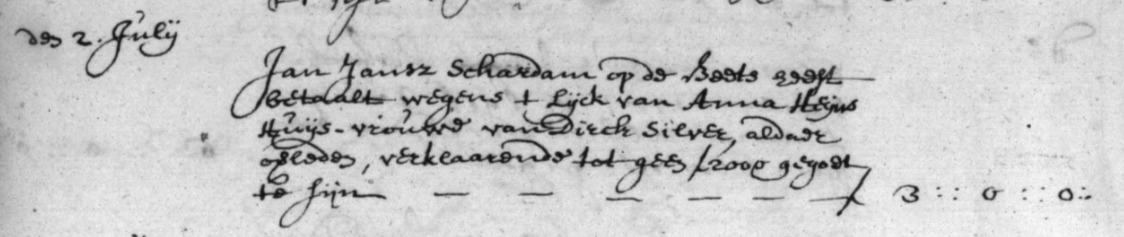 den 2. Julij
Jan Jansz Schardam op de Beets heeft
betaalt wegens t Lijck van Anna Heijns
Huijs-vrouwe van Dirck Silver, aldaer
overleden, verklaarende tot geen f 2000 gegoet
te sijn — — — — — — 3 :: 0 :: 0: